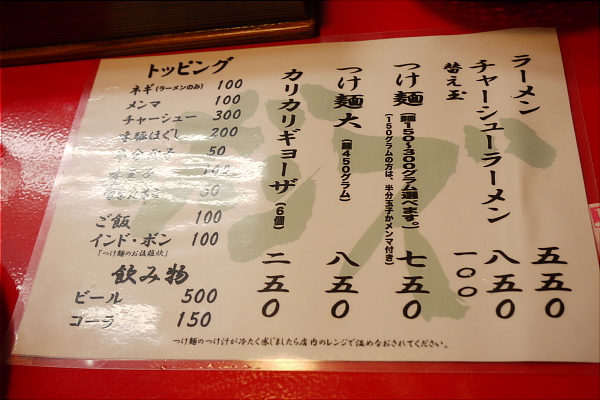 ラーメン 五五〇
チャーシューラーメン 八五〇
替え玉 一〇〇
つけ麺 七五〇
(麺150〜300グラム選べます。)
(150グラムの方は、半分玉子かメンマ付き)
つけ麺大 (麺450グラム) 八五〇
カリカリギョーザ (6個) 二五〇
トッピング
ネギ(ラーメンのみ) 100
メンマ 100
チャーシュー 300
味豚ほぐし 200
50
50
ご飯 100
インド・ボン 100
「つけ麺のお供雑炊」
飲み物
ビール 500
コーラ 150
つけ麺のつけ汁が冷たく感じましたら店内のレンジで温めなおされてください。